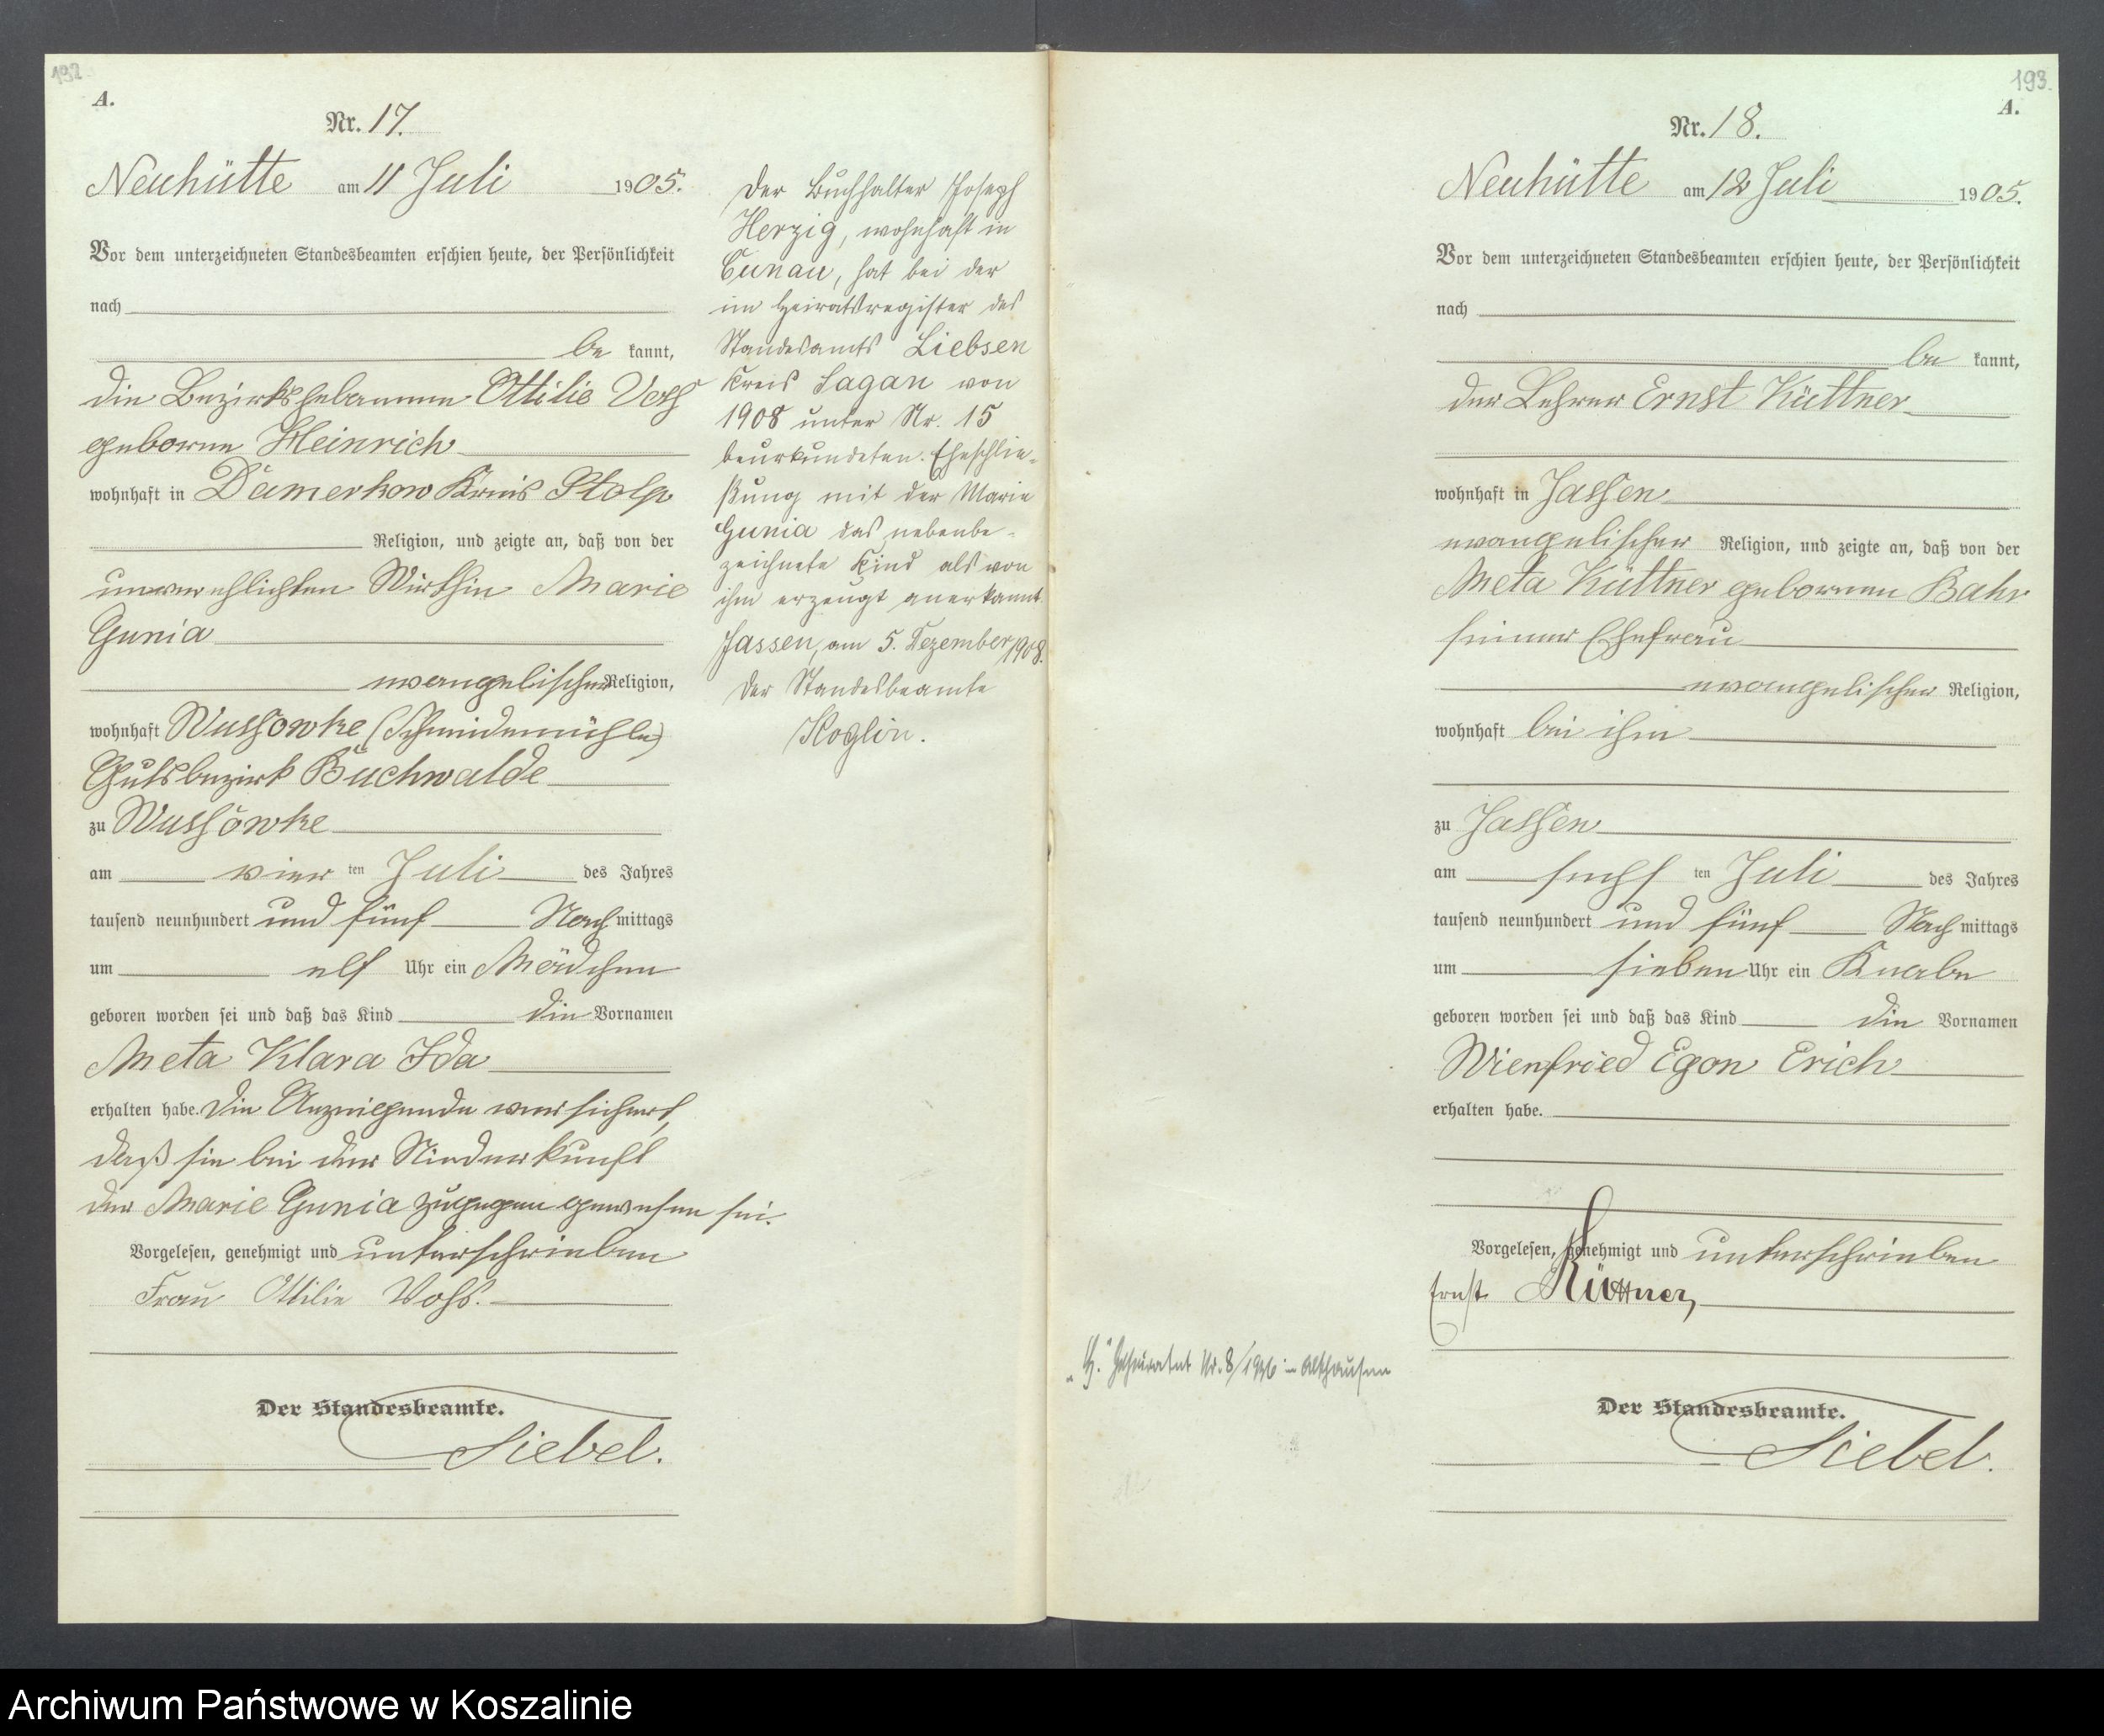 192
A.
Nr. 17.
Neuhütte am 11 Juli 1905.
Vor dem unterzeichneten Standesbeamten erschien heute, der Persönlichkeit
nach
be kannt,
die Bezirkshebamme Ottilie Voß
geborne Heinrich
wohnhaft in Damerkow Kreis Stolp
Religion, und zeigte an, daß von der
unverehlichten Wirthin Marie
Gunia
evangelischer Religion,
wohnhaft Wussowke (Schneidemühle)
Gutsbezirk Buchwalde
zu Wussowke
am vier ten Juli des Jahres
tausend neunhundert und fünf Nach mittags
um elf Uhr ein Mädchen
geboren worden sei und daß das Kind die Vornamen
Meta Klara Ida
erhalten habe. Die Anzeigende versichert,
daß sie bei der Niederkunft
der Marie Gunia zugegen gewesen sei.
Vorgelesen, genehmigt und unterschrieben
Frau Ottilie Voß.
Der Standesbeamte.
Siebel.
Der Buchhalter Joseph
Herzig, wohnhaft in
Cunau, hat bei der
im Heiratsregister des
Standesamts Liebsen
Kreis Sagan von
1908 unter Nr. 15
beurkundeten Eheschlie-
ßung mit der Marie
Gunia das nebenbe-
zeichnete Kind als von
ihm erzeugt anerkannt.
Jassen, am 5. Dezember 1908.
Der Standesbeamte
Koglin.
193.
A.
Nr. 18.
Neuhütte am 12 Juli 1905.
Vor dem unterzeichneten Standesbeamten erschien heute, der Persönlichkeit
nach
be kannt,
der Lehrer Ernst Küttner
wohnhaft in Jassen
evangelischer Religion, und zeigte an, daß von der
Meta Küttner gebornen Bahr
seiner Ehefrau
evangelischer Religion,
wohnhaft bei ihm
zu Jassen
am sechs ten Juli des Jahres
tausend neunhundert und fünf Nach mittags
um sieben Uhr ein Knabe
geboren worden sei und daß das Kind die Vornamen
Wienfried Egon Erich
erhalten habe.
Vorgelesen, genehmigt und unterschrieben
Ernst Küttner
Der Standesbeamte.
Siebel.
"H." Geheiratet Nr. 8/1936 in Althausen
Archiwum Państwowe w Koszalinie